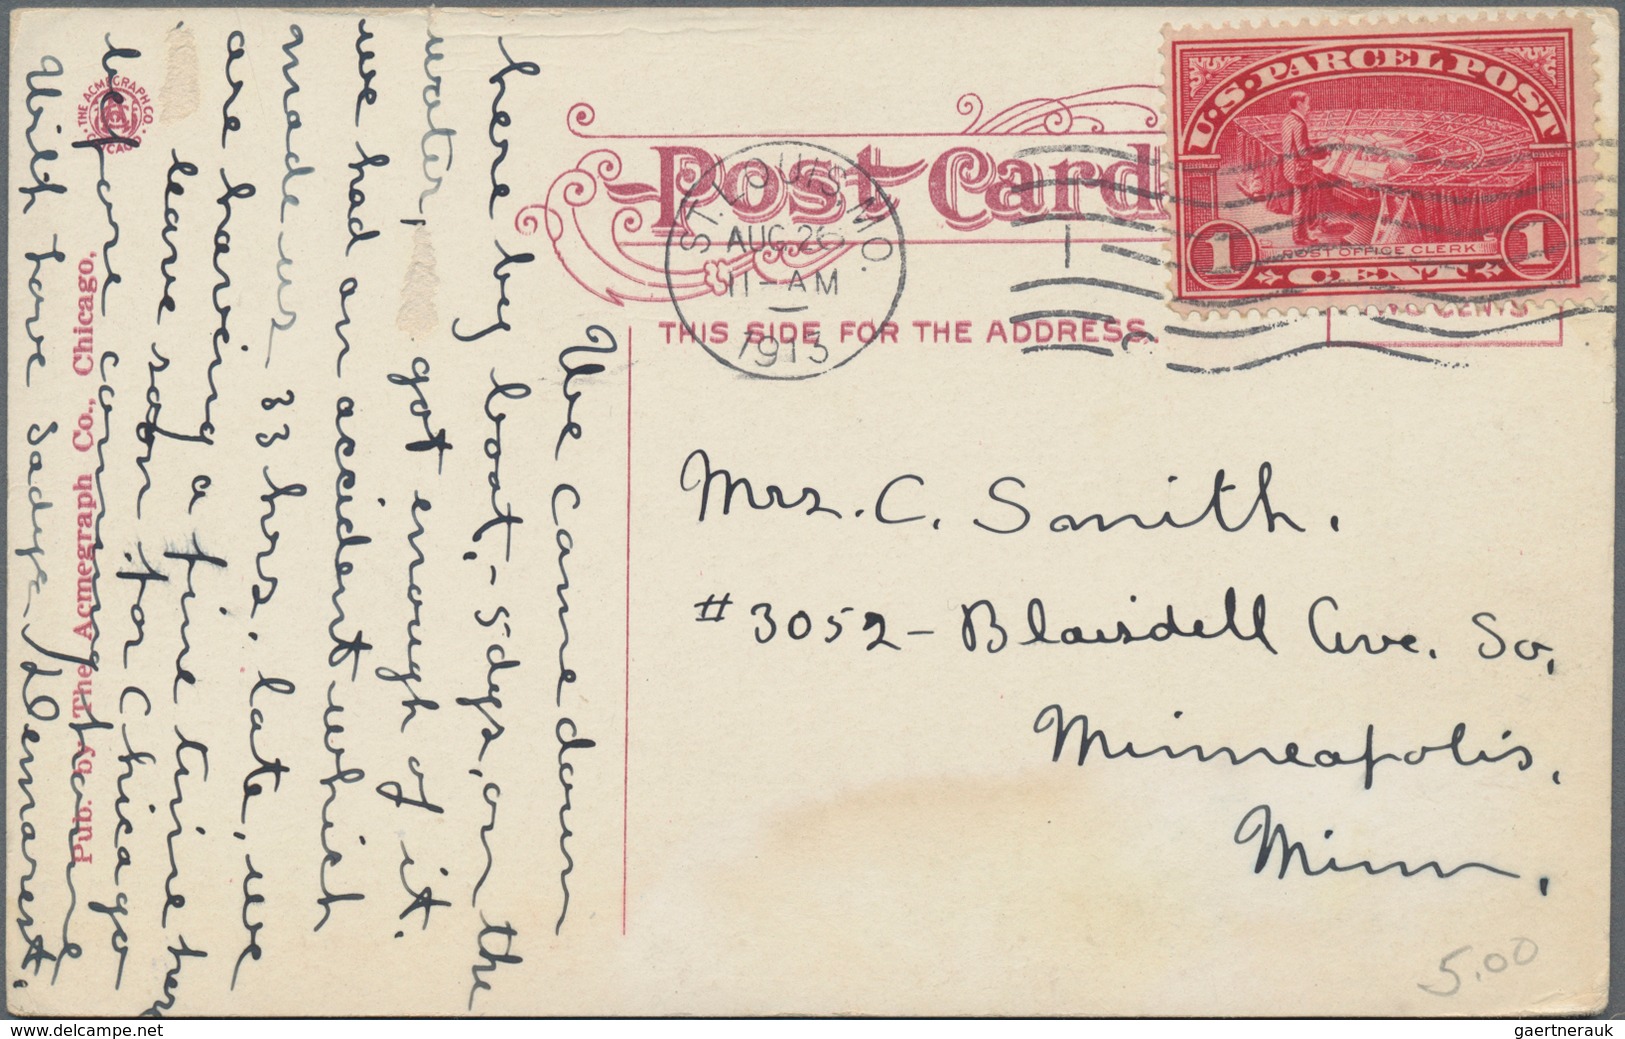 U.S. PARCEL POST
1 1
POST OFFICE CLERK
CENT
Post Card
ST. LOUIS, MO.
AUG 26
11-AM
1913
THIS SIDE FOR THE ADDRESS.
CENTS
Mrs. C. Smith.
#3052-Blaisdell Ave. So.
Minneapolis,
Minn,
5.00
We came down
here by boat, - 5 dys, on the
water, got enough of it.
we had an accident which
made us 33 hrs. late, we
are having a fine time here
leave soon for Chicago
before coming home
With love Sadye Demarest.
THE ACMEGRAPH CO.
CHICAGO
Pub. by The Acmegraph Co., Chicago,
delcampe.net
gaertnerauk